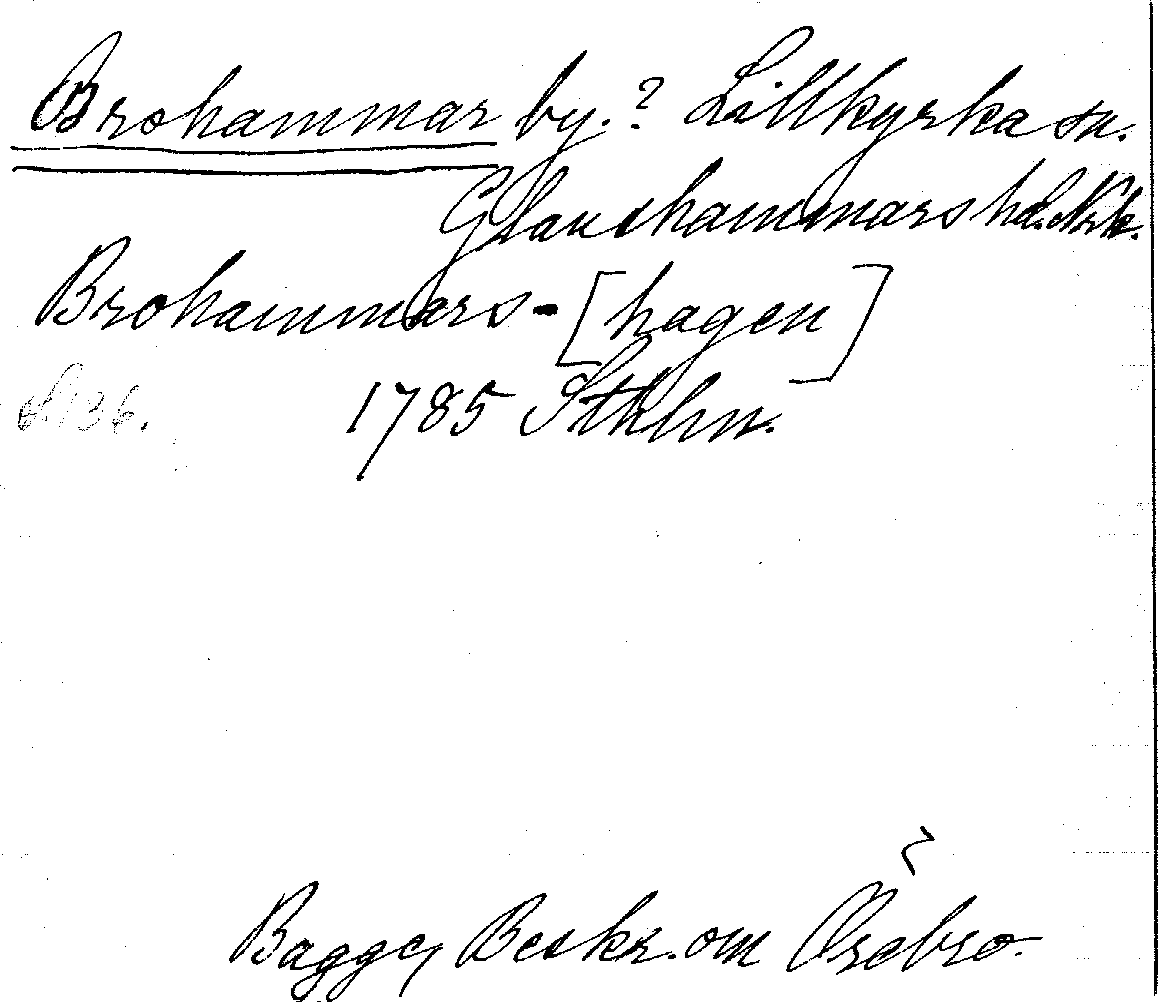 Brohammar by.? Lillkyrka sn.
Glanshammars hd. Nrk.
Brohammars-[hagen]
S. 136. 1785 Sthlm.
Bagge, Beskr. om Örebro.